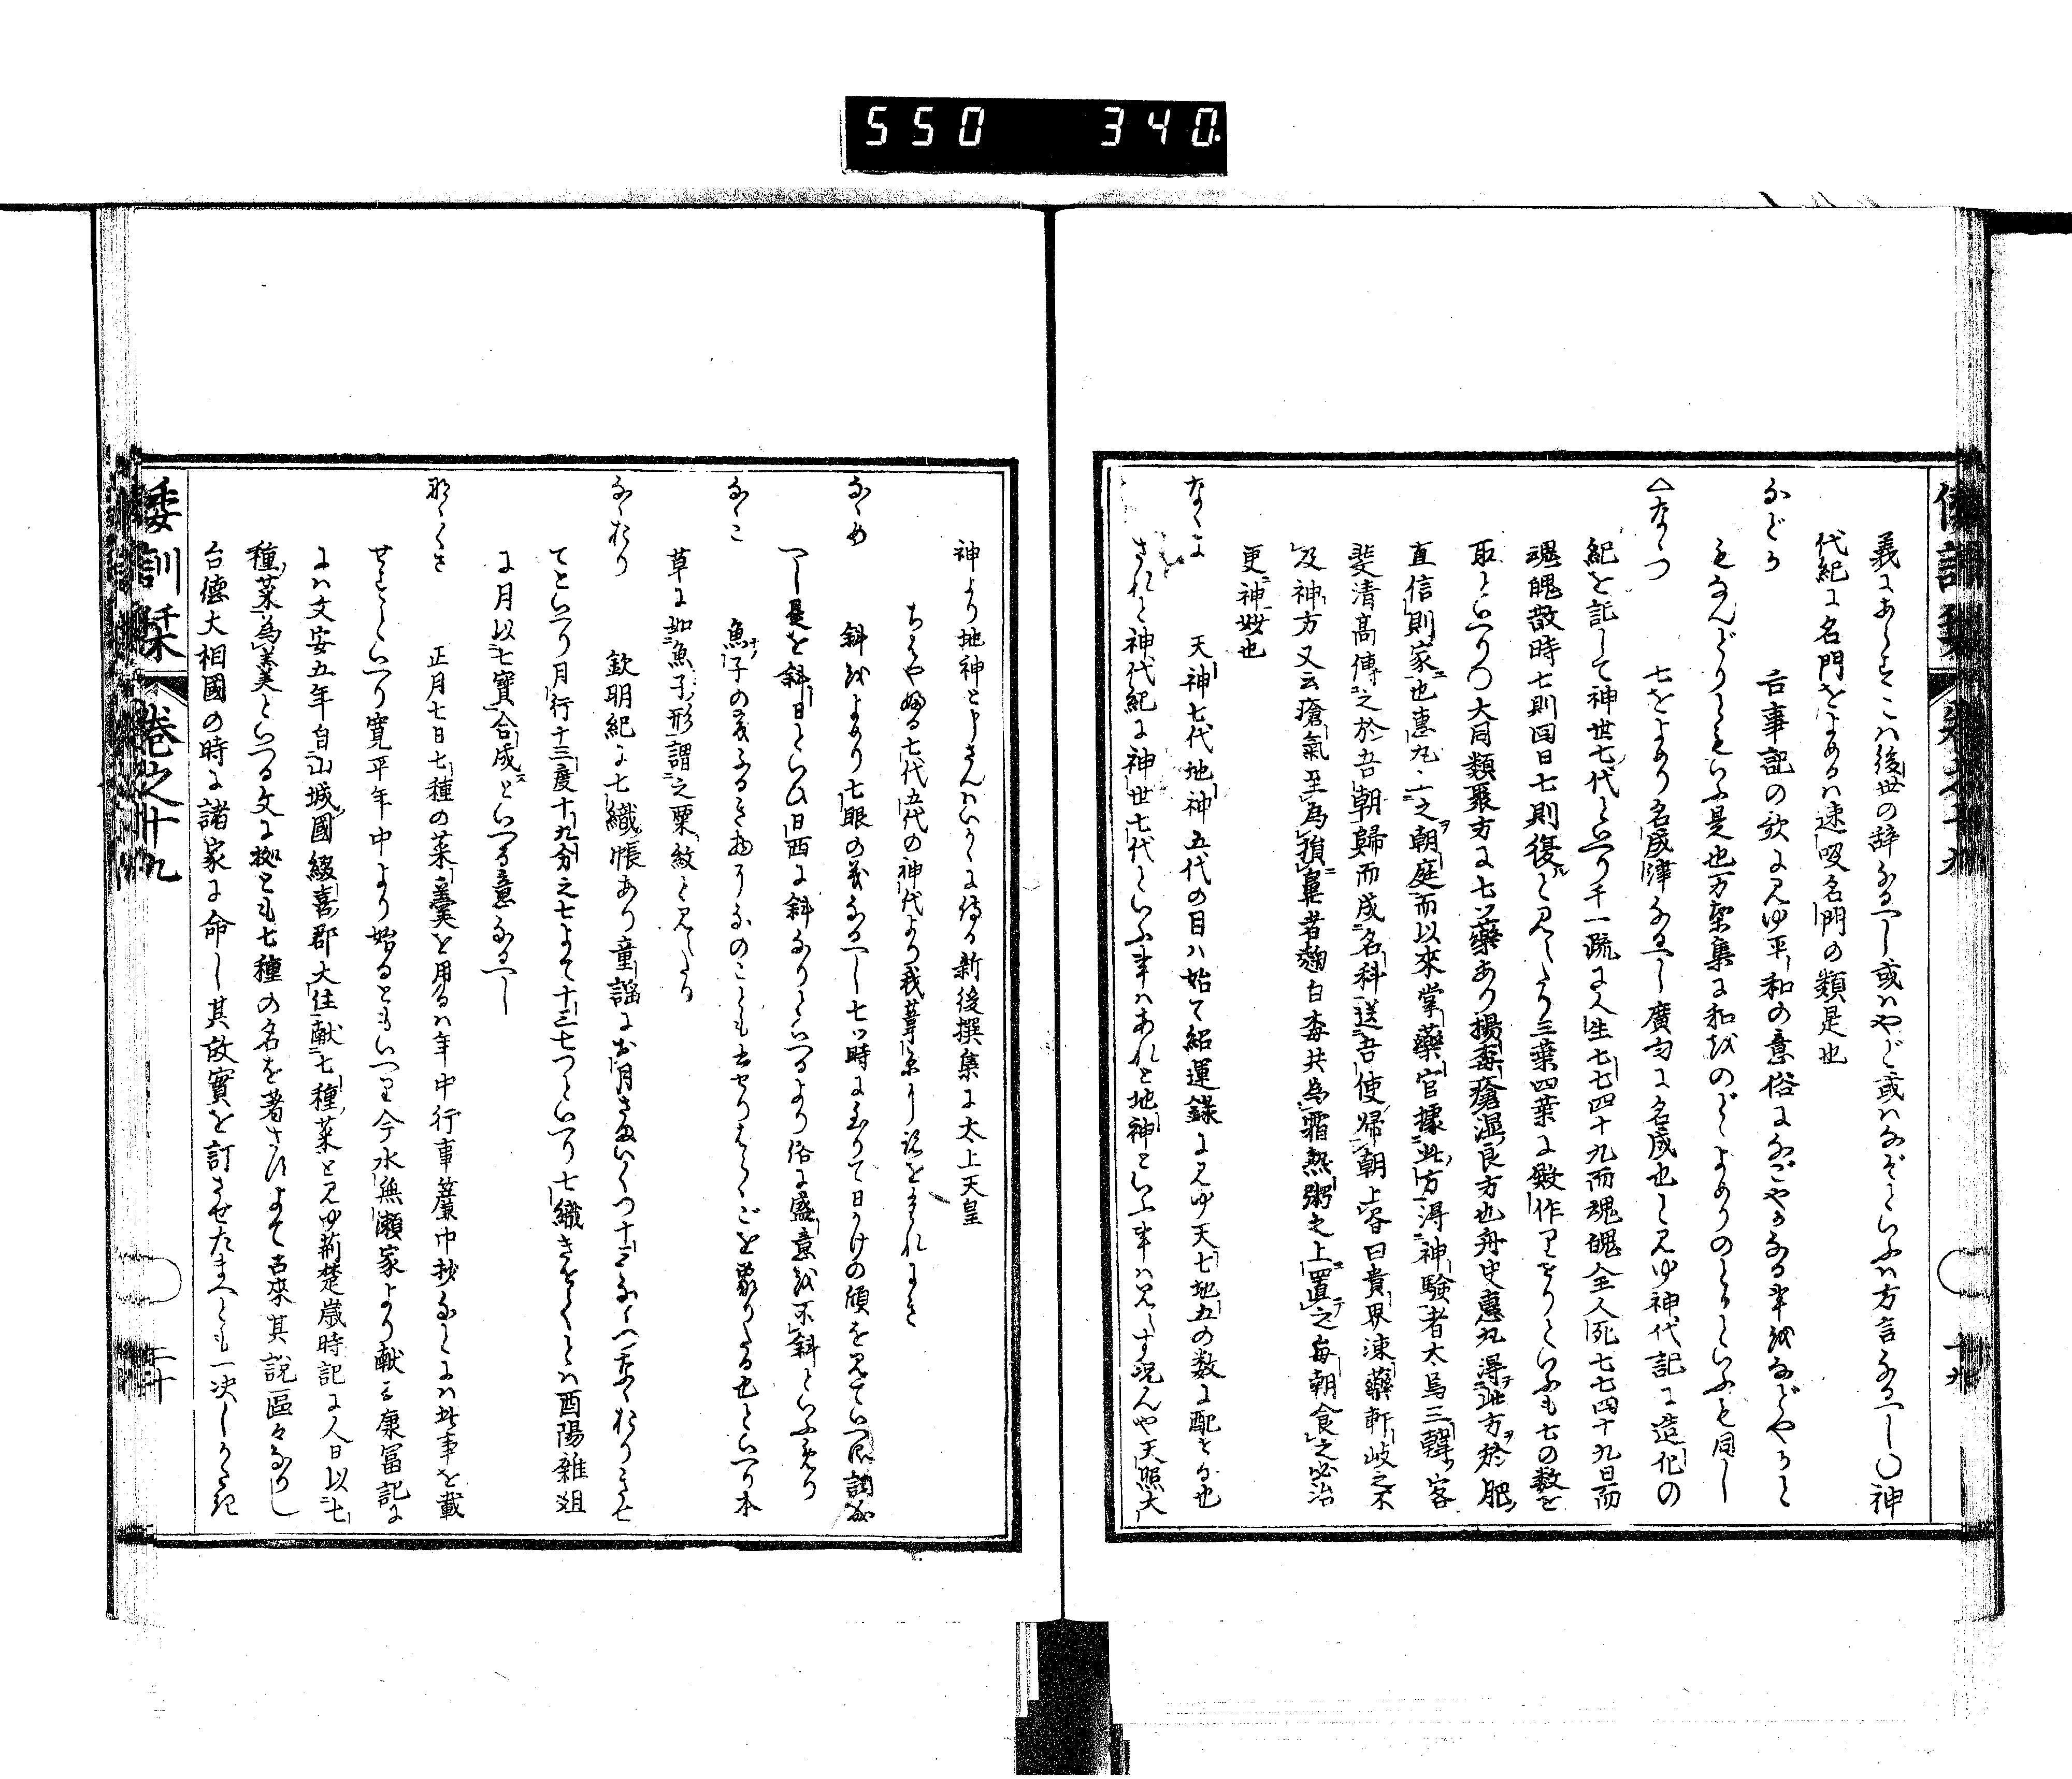 550 340.
義にあらすこハ後世の辞なるへし或ハやど或ハなぞといふハ方言なるへし〇神
代紀に名門をよめるハ速吸名門の類是也
などか 古事記の歌に見ゆ平和の意俗になごやかなる事をなどやかと
もなんどりともいふ是也万葉集に和をのどよめりのとかといふも同し
△なゝつ 七をよめり名成津なるへし廣韵に名成也と見ゆ神代記に造化の
紀を記して神世七代といへり千一疏に人生七七四十九而魂魄全人死七七四十九日而
魂魄散時七則囘日七則復と見えたり三葉四葉に殿作りせりといふも七の数を
取といへり〇大同類聚方に七ツ藥あり揚毒瘡湿良方也舟史惠九得此方於肥
直信則家也惠九上之朝庭而以來掌藥官據此方得神驗者太爲三韓客
斐清高傳之於吾朝歸而成名科送吾使歸朝上客曰貴界凍藥軒岐之不
及神方又云瘡氣至爲損鼻者麹白毒共爲霜熱粥之上置之毎朝食之必治
更神妙也
なゝよ 天神七代地神五代の目ハ始て紹運録に見ゆ天七地五の数に配する也
されと神代紀に神世七代といふ事ハあれと地神といふ事ハ見えす况んや天照大
神より地神と申さんハいかゝに侍る新後撰集に太上天皇
ちはや婦る七代五代の神代より我葦原に跡をたれにき
なゝめ 斜をよめり七眼の義なるへし七ツ時に至りて日かけの傾を見ていへる詞成
へし是を斜日といひ日西に斜なりといへるより俗に盛意を不斜といふめり
なゝこ 魚子の義ふるき物になのこともせりはらゝごを象りたる也といへり本
草に如魚子形謂之粟紋と見えたり
なゝおり 欽明紀に七織帳あり童謡にお月さまいくつ十三なゝつ七おりきせ
てといへり月行十三度十九分之七よて十三七つといへり七織きせてとハ酉陽雜俎
に月以七寶合成といへる意なるへし
那ゝくさ 正月七日七種の菜羹を用るハ年中行事簾中抄なとにハ此事を載
せすといへり寛平年中より始るともいへり今水無瀬家より献る康冨記に
にハ文安五年自山城國綴喜郡大住献七種菜と見ゆ荊楚歳時記に人日以七
種菜爲羹といへる文に拠とも七種の名を著さすよて古來其説區々なりし
台德大相國の時に諸家に命し其故實を訂させたまへとも一决しかたき
倭訓栞 卷之十九 十九
倭訓栞 卷之十九 二十